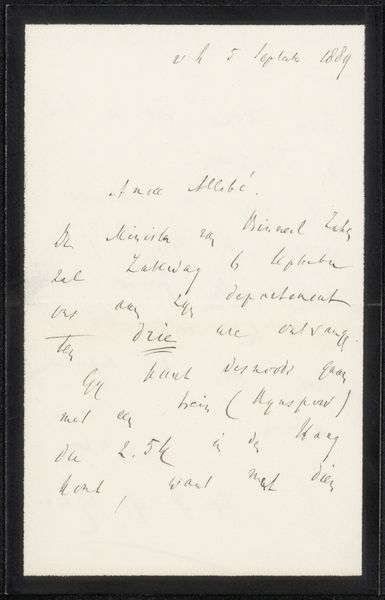 v h 5 September 1889
Amice Allebé.
De Minister van Binnenl Zaken
zal Zaterdag 6 September
ons aan zijn departement
ten drie ure ontvangen.
Gij kunt desnoods gaan
met een trein (Rijnspoor)
die 2.54 in den Haag
komt, want met dien